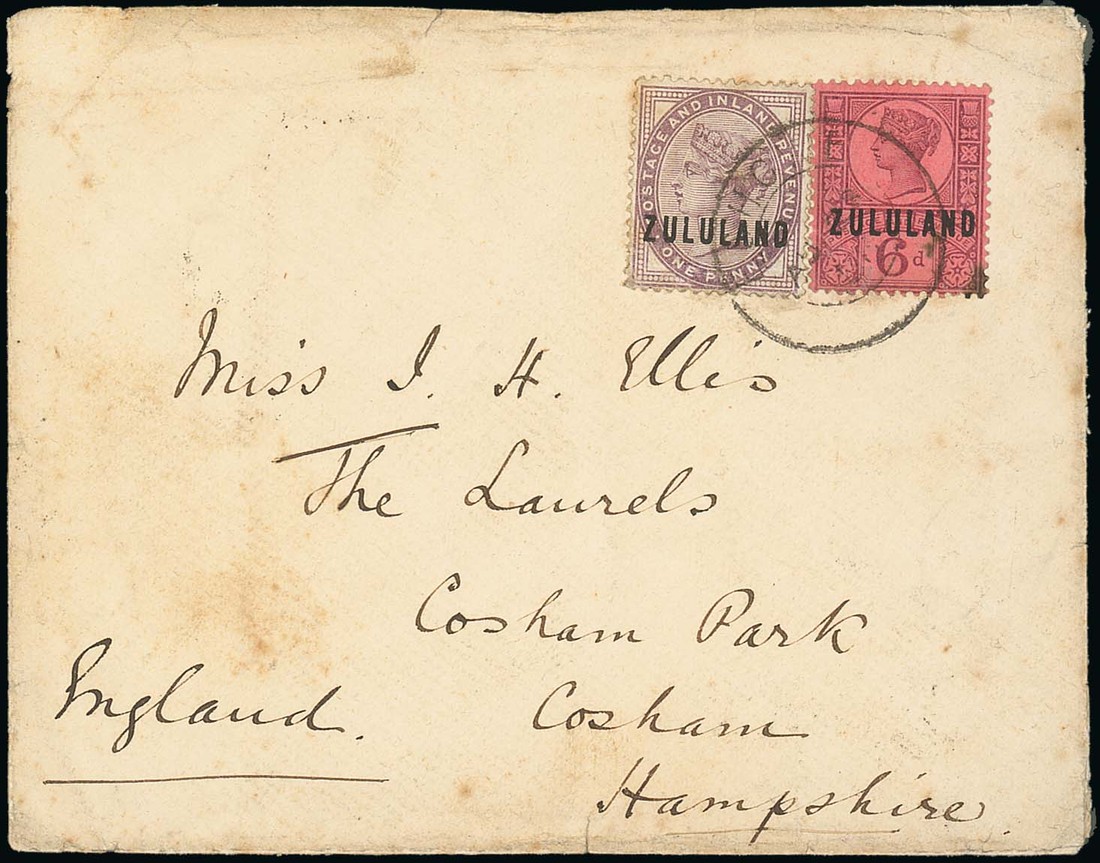 POSTAGE AND INLAND REVENUE
ZULULAND
ONE PENNY
ZULULAND
6d
Miss I. H. Ellis
The Laurels
Cosham Park
England.
Cosham
Hampshire.